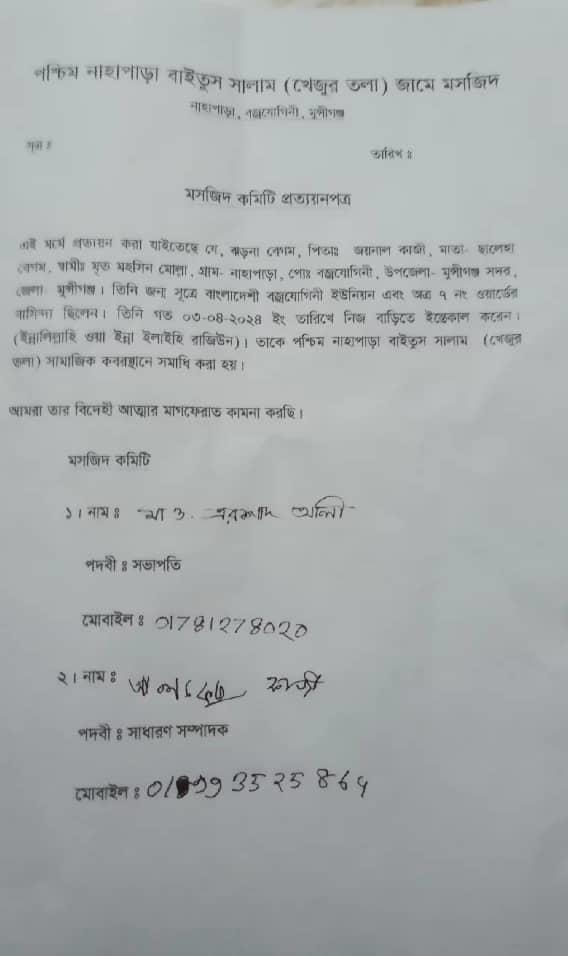 পশ্চিম নাহাপাড়া বাইতুস সালাম (খেজুর তলা) জামে মসজিদ
নাহাপাড়া, বজ্রযোগিনী, মুন্সীগঞ্জ
সূত্র ঃ
তারিখ ঃ
মসজিদ কমিটি প্রত্যয়নপত্র
এই মর্মে প্রত্যয়ন করা যাইতেছে যে, ঝড়না বেগম, পিতাঃ জয়নাল কাজী, মাতা- ছালেহা
বেগম, স্বামীঃ মৃত মহসিন মোল্লা, গ্রাম- নাহাপাড়া, পোঃ বজ্রযোগিনী, উপজেলা- মুন্সীগঞ্জ সদর,
জেলা- মুন্সীগঞ্জ। তিনি জন্ম সূত্রে বাংলাদেশী বজ্রযোগিনী ইউনিয়ন এবং অত্র ৭ নং ওয়ার্ডের
বাসিন্দা ছিলেন। তিনি গত ০৩-০৪-২০২৪ ইং তারিখে নিজ বাড়িতে ইন্তেকাল করেন।
(ইন্নালিল্লাহি ওয়া ইন্না ইলাইহি রাজিউন)। তাকে পশ্চিম নাহাপাড়া বাইতুস সালাম (খেজুর
তলা) সামাজিক কবরস্থানে সমাধি করা হয়।
আমরা তার বিদেহী আত্মার মাগফেরাত কামনা করছি।
মসজিদ কমিটি
১। নাম ঃ এরশাদ আলী
পদবী ঃ সভাপতি
মোবাইল ঃ 01781278020
২। নাম ঃ কাজী
পদবী ঃ সাধারণ সম্পাদক
মোবাইল ঃ